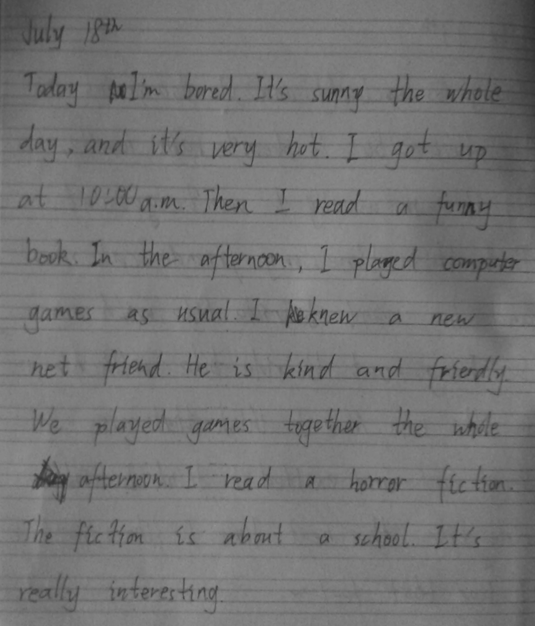 July 18th
Today I'm bored. It's sunny the whole
day, and it's very hot. I got up
at 10:00 a.m. Then I read a funny
book. In the afternoon, I played computer
games as usual. I knew a new
net friend. He is kind and friendly.
We played games together the whole
afternoon. I read a horror fiction.
The fiction is about a school. It's
really interesting.